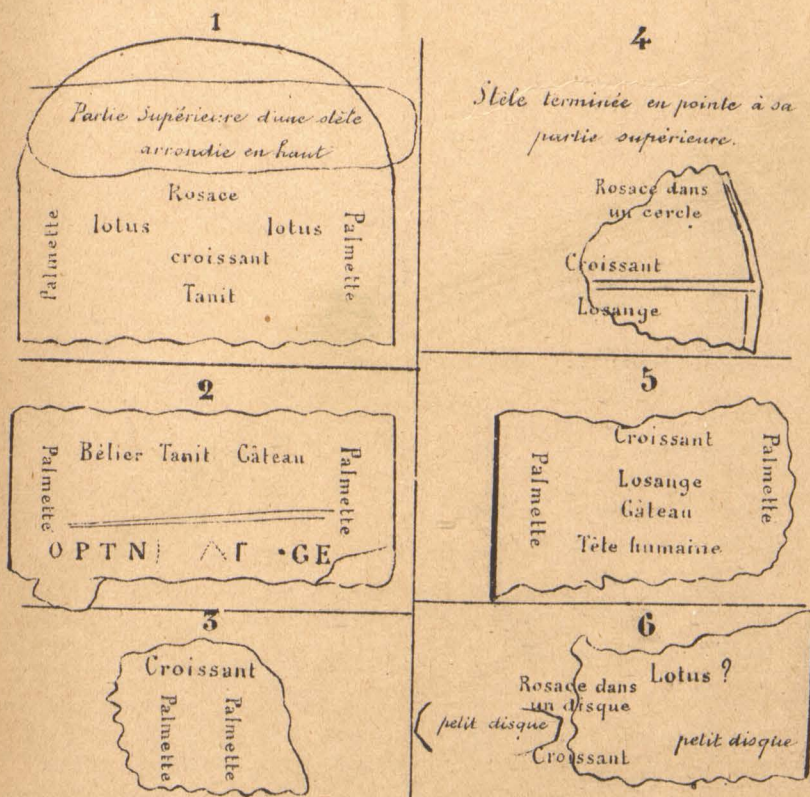 1
Partie Supérieure d'une stèle
arrondie en haut
Rosace
Palmette
lotus
lotus
Palmette
croissant
Tanit
2
Palmette
Bélier Tanit Gâteau
Palmette
O P T N
Γ •GE
3
Croissant
Palmette
Palmette
4
Stèle terminée en pointe à sa
partie supérieure.
Rosace dans
un cercle
Croissant
Losange
5
Croissant
Palmette
Palmette
Losange
Gâteau
Tête humaine
6
Lotus ?
Rosace dans
un disque
petit disque
petit disque
Croissant